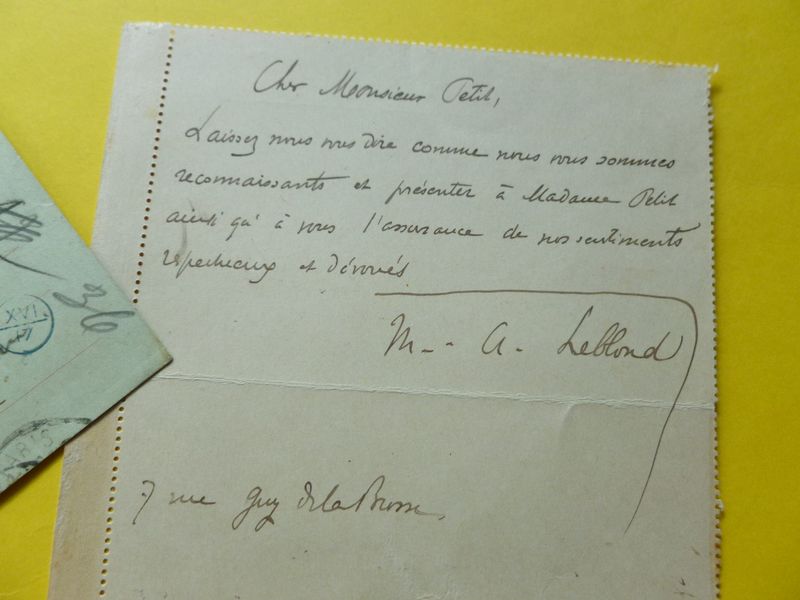 Cher Monsieur Petit,
Laissez nous vous dire comme nous vous sommes
reconnaissants et présenter à Madame Petit
ainsi qu'à vous l'assurance de nos sentiments
respectueux et dévoués
M-. A. Leblond
7 rue Guy de la Brosse,
36
XVI
PARIS